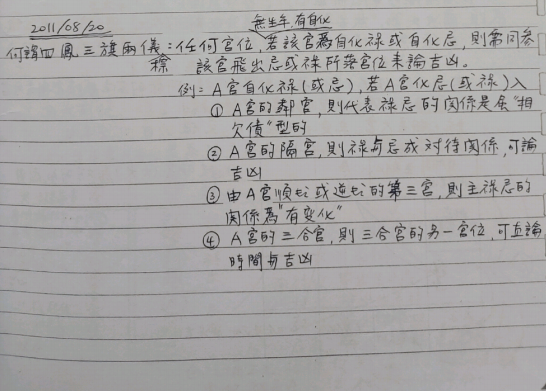 2011/08/20
無生年,有自化
何謂四鳳三旗兩儀:任何宮位,若該宮為自化祿或自化忌,則需同參
標 該宮飛出忌或祿所落宮位來論吉凶。
例:A宮自化祿(或忌),若A宮化忌(或祿)入
① A宮的鄰宮,則代表祿忌的關係是屬"相
欠債"型的
② A宮的隔宮,則祿與忌成對待關係,可論
吉凶
③ 由A宮順數或逆數的第三宮,則主祿忌的
關係為"有變化"
④ A宮的三合宮,則三合宮的另一宮位,可並論
時間與吉凶